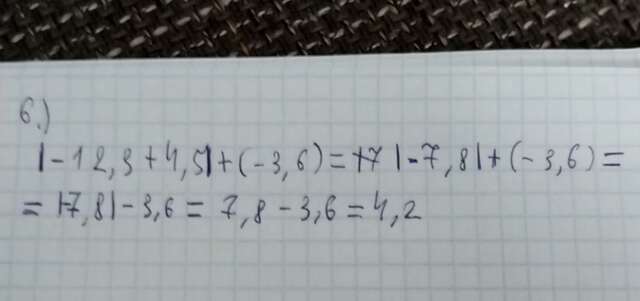 6.)
|-12,3+4,5|+(-3,6)=+7|-7,8|+(-3,6)=
=|-7,8|-3,6=7,8-3,6=4,2